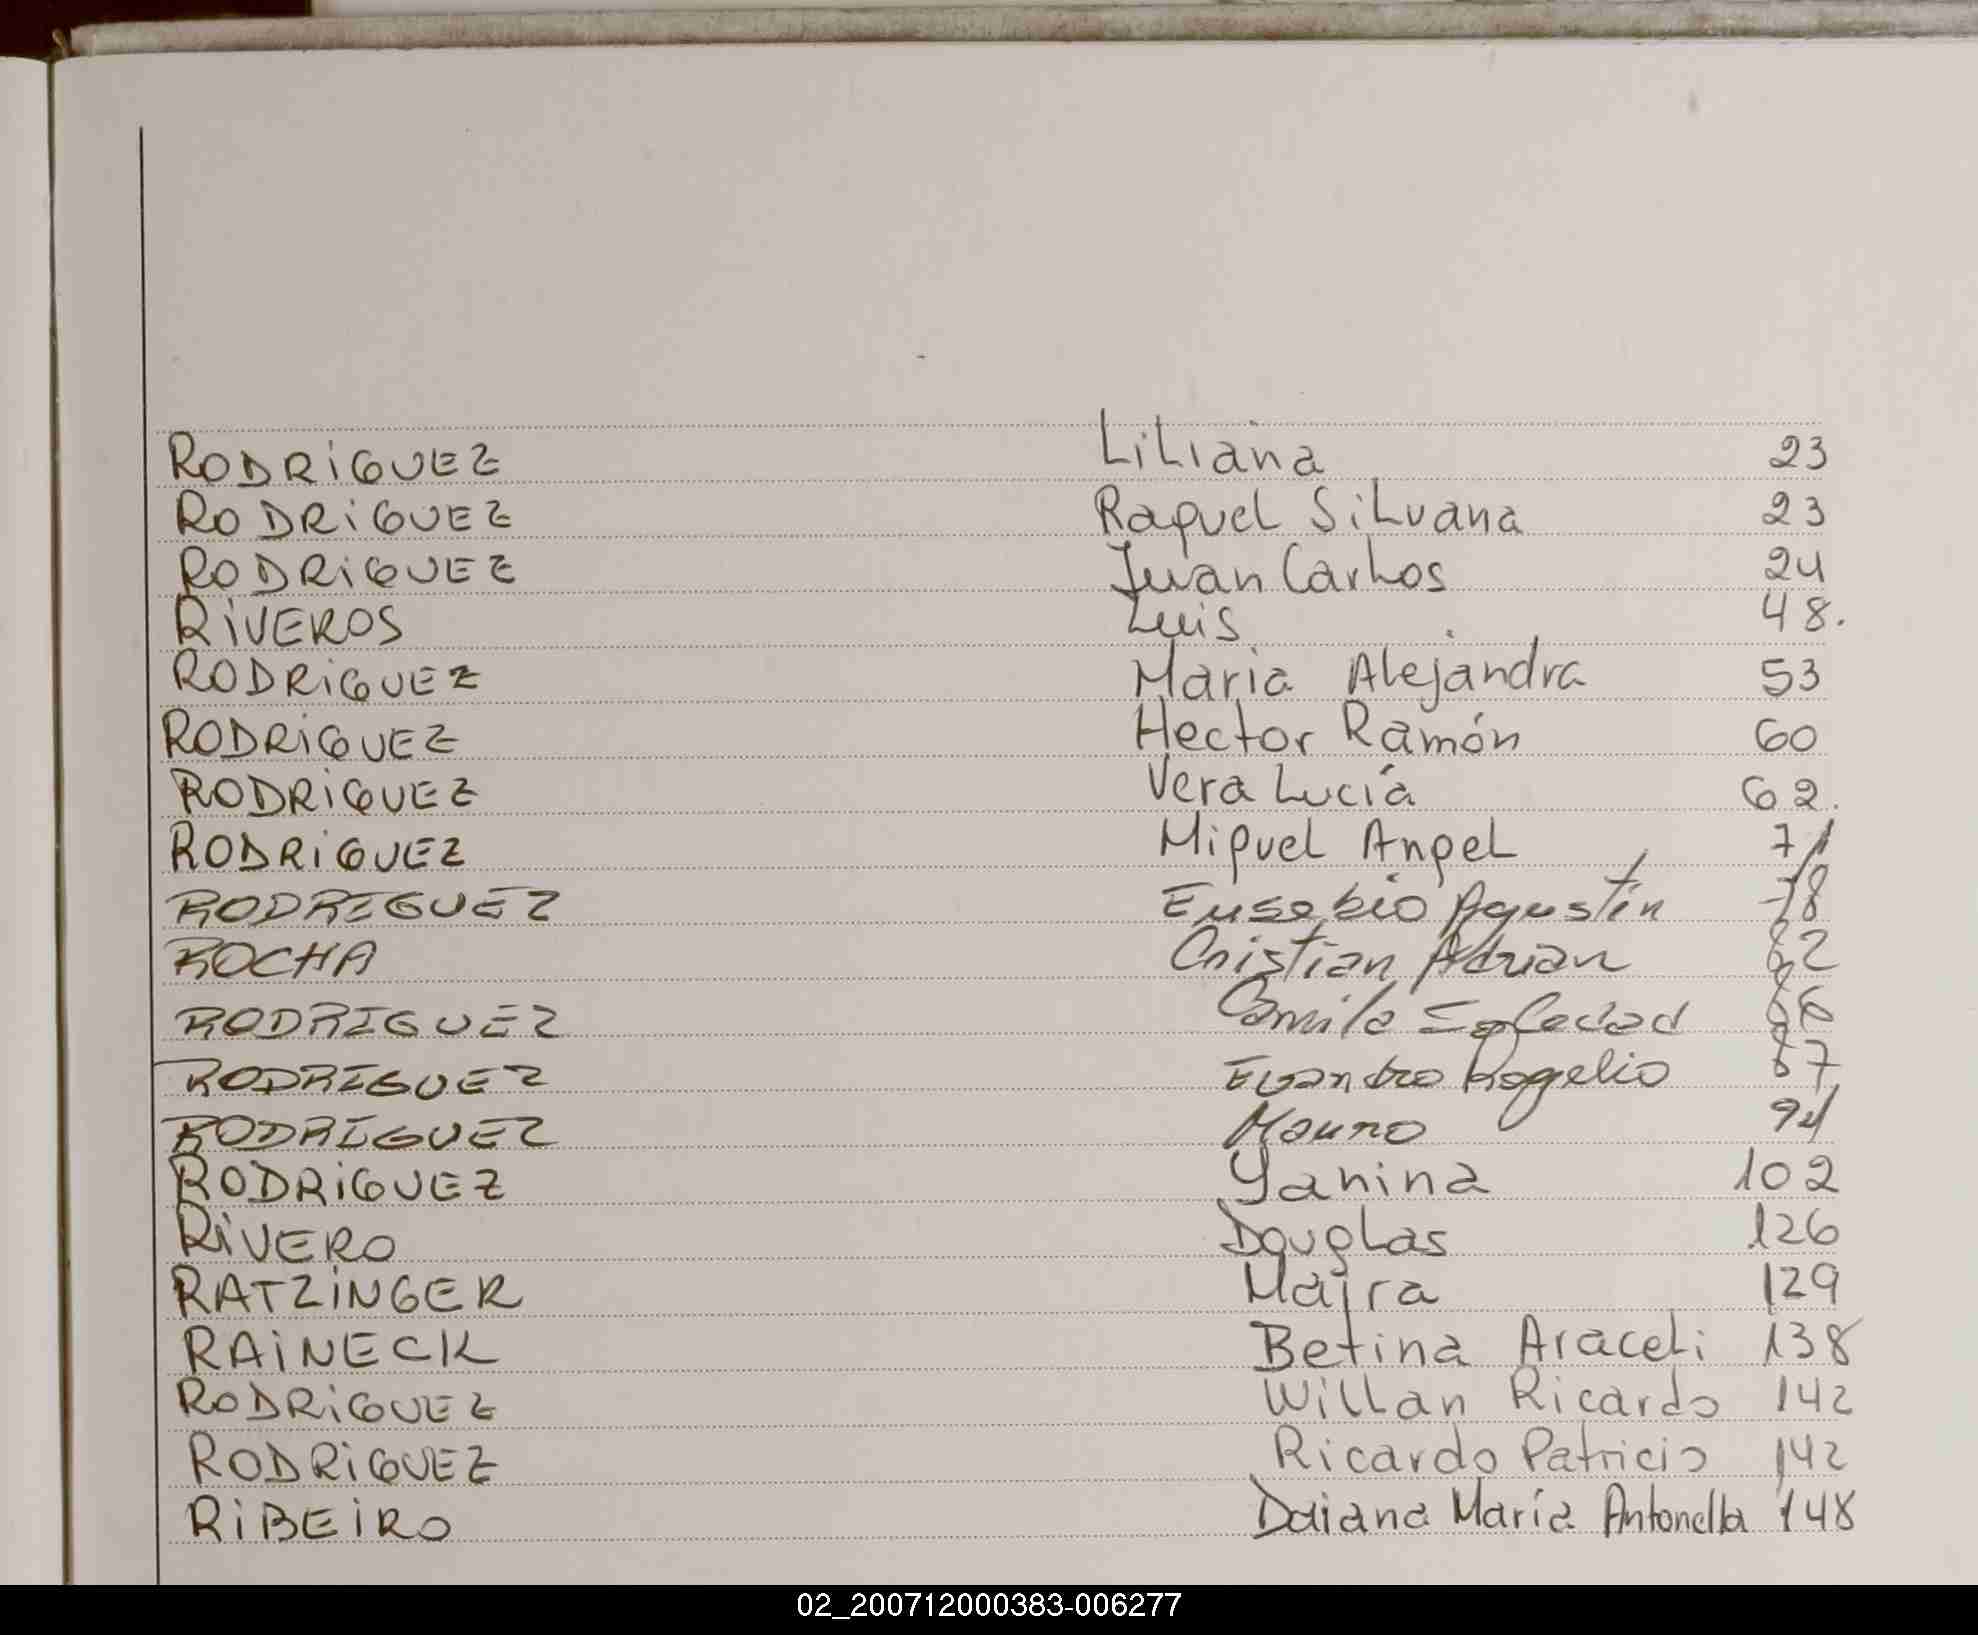 RODRiGUEZ LiLiana 23
RODRiGUEZ Raquel SiLvana 23
RODRiGUEZ Juan Carlos 24
RiVEROS Luis 48.
RODRiGUEZ Maria Alejandra 53
RODRiGUEZ Hector Ramón 60
RODRiGUEZ Vera Lucía 62.
RODRiGUEZ Miguel Angel 71
RODRIGUEZ Eusebio Agustín 78
ROCHA Cristian Adrian 82
RODRIGUEZ Camila Soledad 86
RODRIGUEZ Evandro Rogelio 87
RODRIGUEZ Mauro 94
RODRiGUEZ Yanina 102
RiVERO Douglas 126
RATZiNGER Majra 129
RAiNECK Betina Araceli 138
RODRiGUEZ Willan Ricardo 142
RODRiGUEZ Ricardo Patricio 142
RiBEiRO Daiana María Antonella 148
02_200712000383-006277